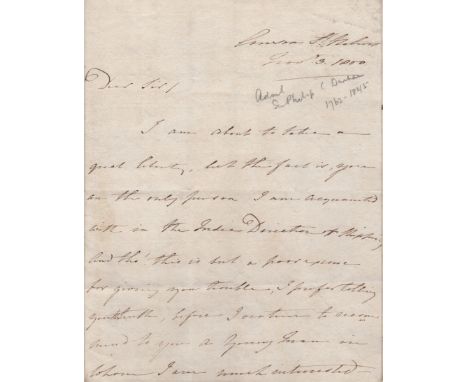 Nov 3. 1800
Dear Sir/
Adml
Sir Philip C Durham
1763-1845
I am about to take a
great liberty, but the fact is, you
are the only person I am acquainted
with in the India Direction & Shipping
and tho' this is but a poor excuse
for giving you trouble, I prefer telling
truth, before I venture to recom
mend to you a Young Man in
whom I am much interested